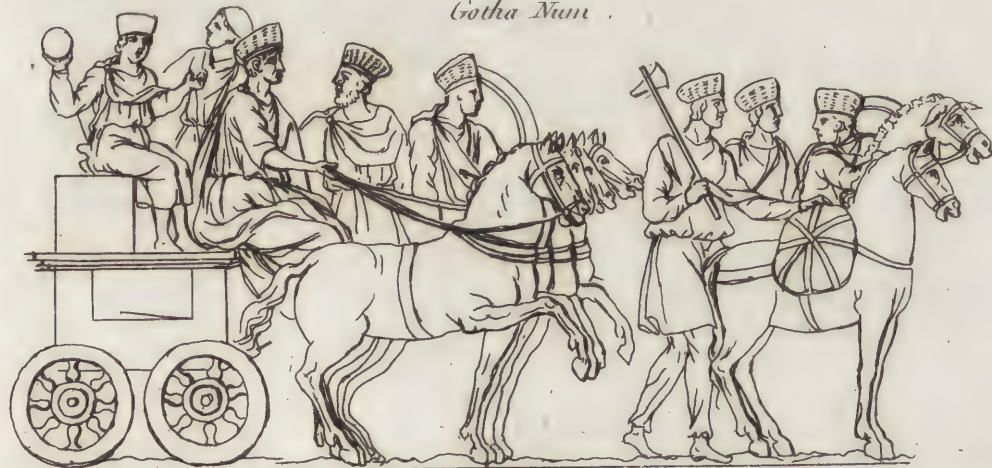 Gotha Num .